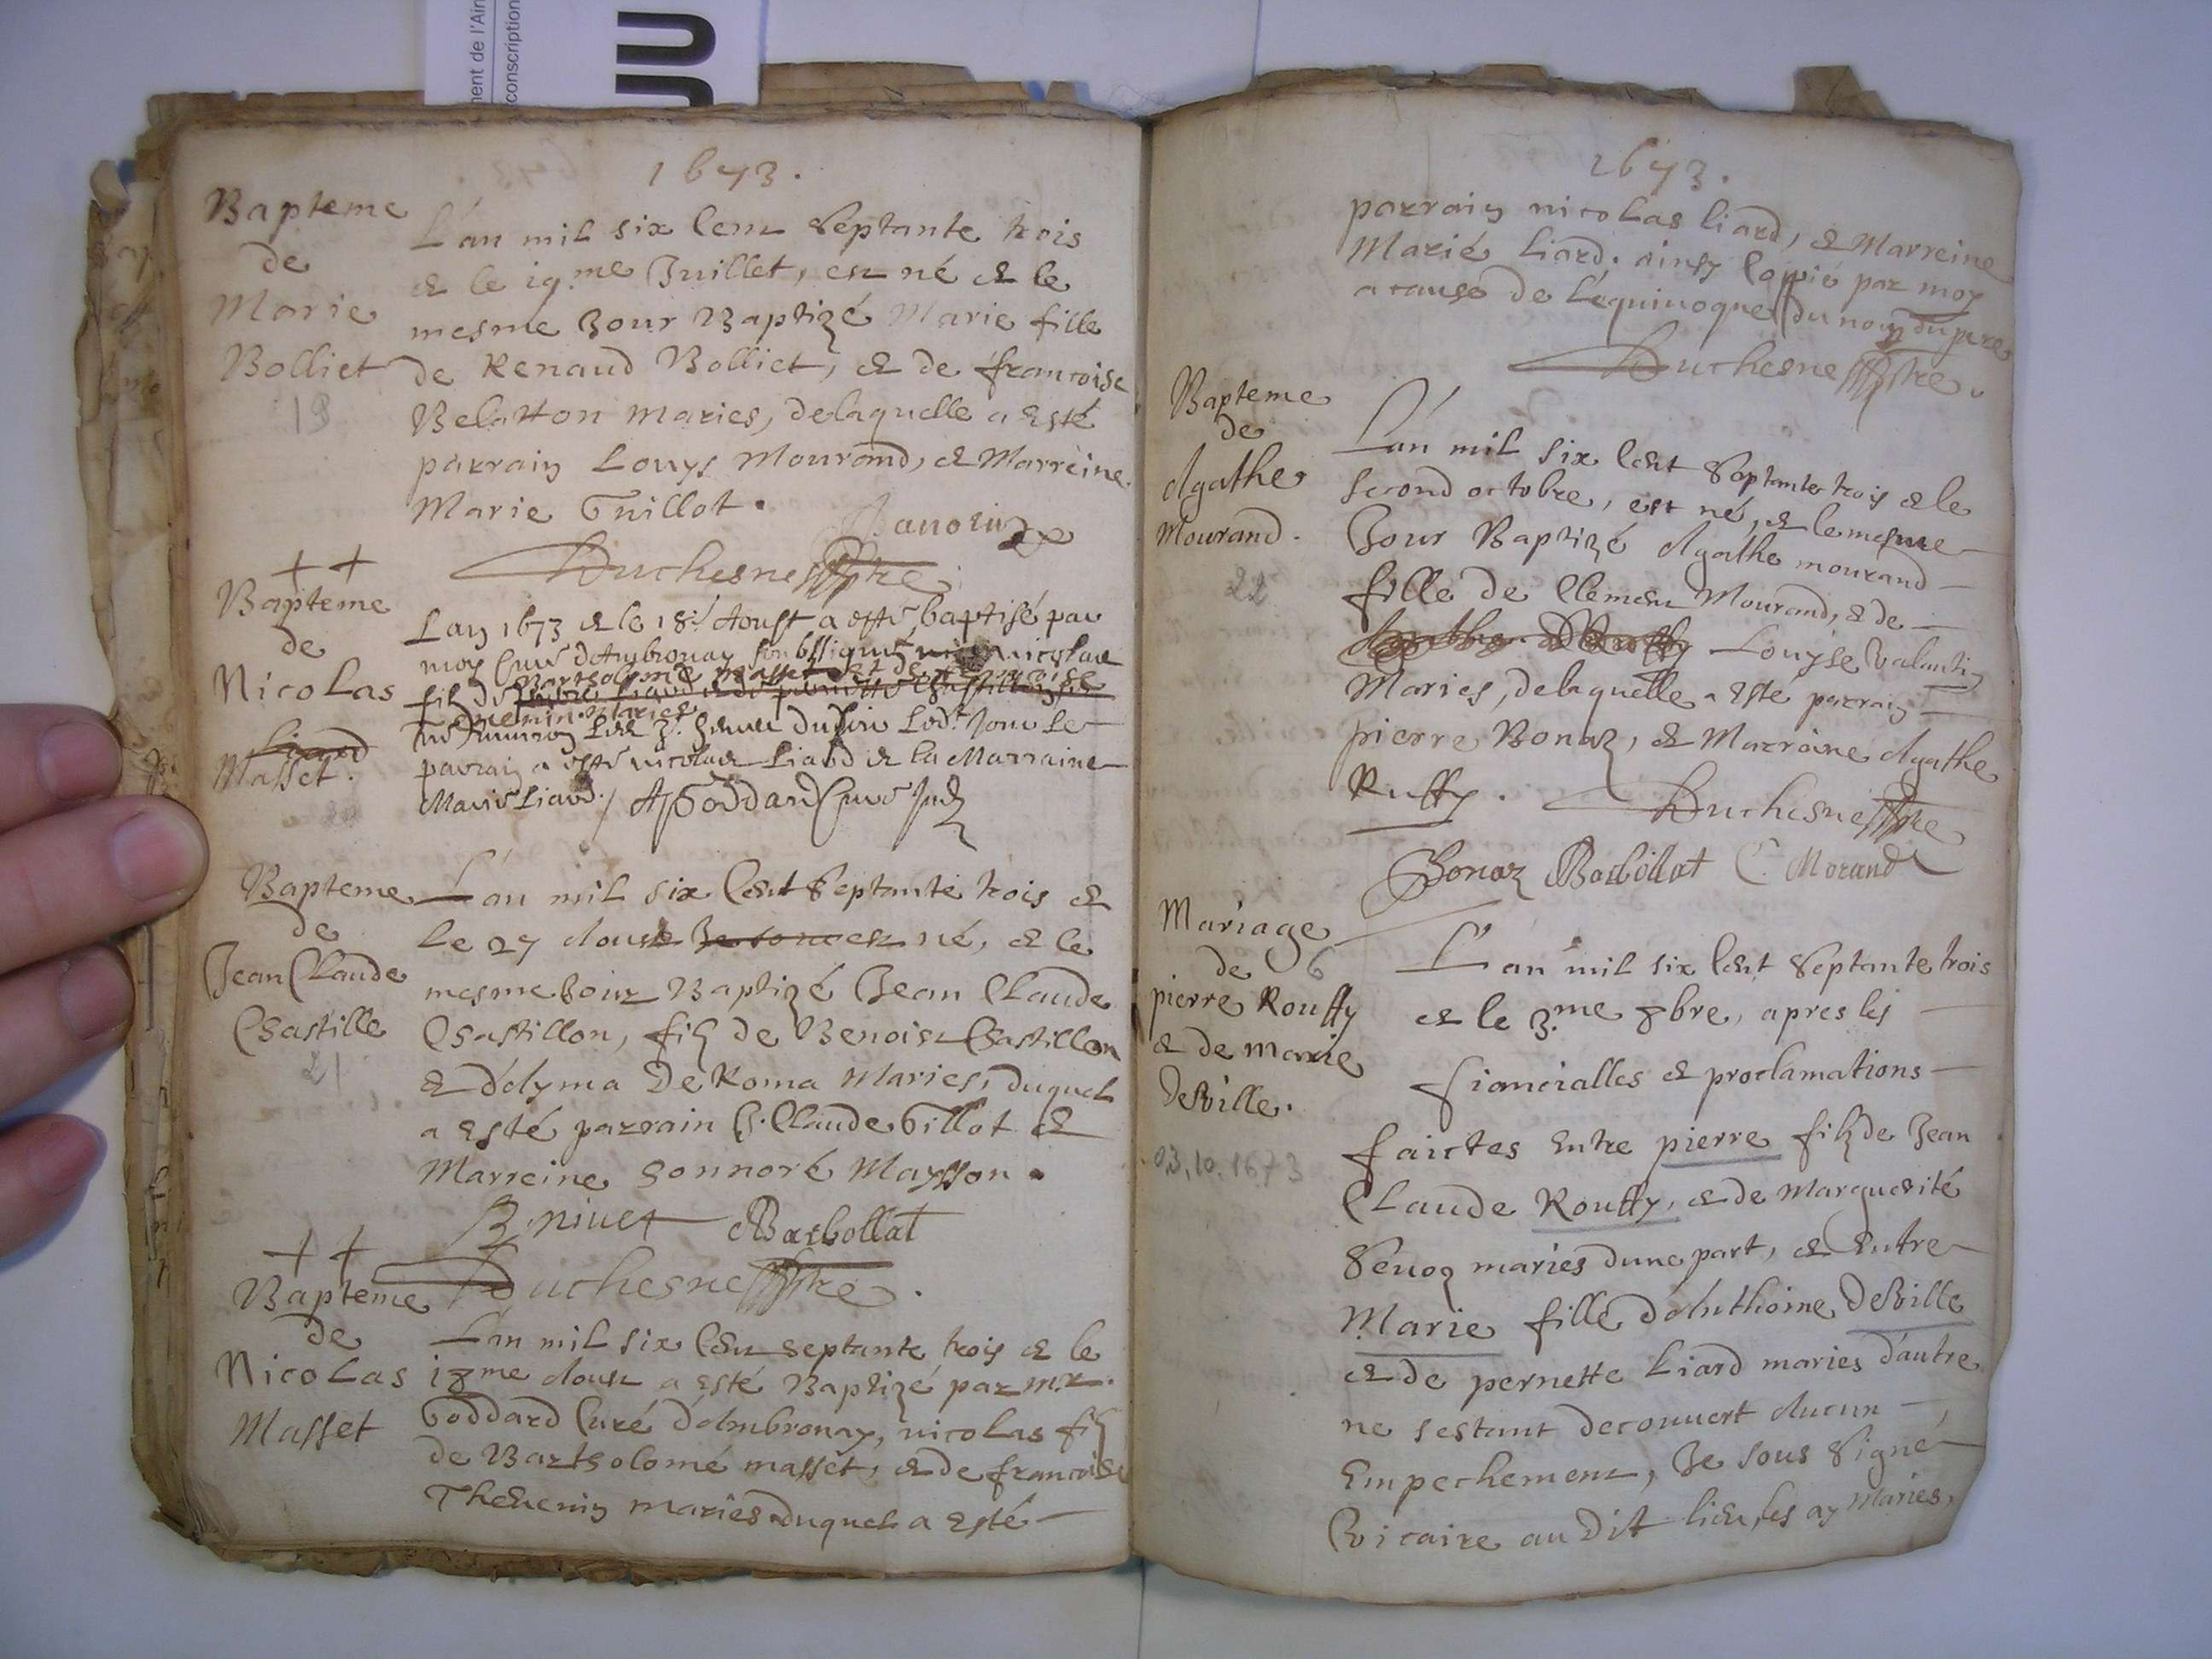 ment de l'Ain
conscription
1673.
Bapteme
de
Marie
Bolliet
19
L'an mil six Cent Septante trois
& le 19.me Juillet, est né & le
mesme Jour Baptizé Marie fille
de Renaud Bolliet, & de francoise
Belatton maries, de laquelle a Esté
parrain Louys Mourand, & Marreine
Marie Guillot.
Duchesne ptre
++
Bapteme
de
Nicolas
Liard
Masset.
20
Lan 1673 & le 18.e Aoust a esté baptisé par
moy Curé dAmbronay soubssigné Nicolas
fils de Bartholomé Masset et de francoise
Themenin. Maries
parrain a esté nicolas Liard & la Marraine
Marie Liard. / A Goddard Curé
Bapteme
de
Jean Claude
Chastille
21
L'an mil six Cent Septante trois &
Le 27 Aoust est né, & le
mesme Jour Baptizé Jean Claude
Chastillon, filz de Benoist Chastillon
& d'Ayma De Roma Maries, duquel
a Esté parrain h. Claude Gillot &
Marreine honnoré Maysson.
B. niuet Barbollat
Duchesne ptre.
++
Bapteme
de
Nicolas
Masset
L'an mil six Cent septante trois & le
18me Aoust a esté Baptizé par mr.
Goddard Curé d'Ambronay, nicolas filz
de Bartholomé masset, & de francoise
Thevenin mariés duquel a Esté
1673.
parrain nicolas liard, & Marreine
Marié Liard. ainsy Coppié par moy
a cause de l'equiuoque du nom du pere
Duchesne ptre.
Bapteme
de
Agathe
Mourand.
22
L'an mil six Cent Septante trois & le
second octobre, est né, & le mesme
Jour Baptizé Agathe mourand
fille de Clement Mourand, & de
Louyse Valantin
Maries, de laquelle a Esté parrain
pierre Bonaz, & Marraine Agathe
Ruffy.
Duchesne ptre
Bonaz Barbollat C. Morand
Mariage
de 6
pierre Rouffy
& de marie
DeVille.
03.10.1673
L'an mil six Cent Septante trois
& le 3.me 8bre, apres les
fiancialles & proclamations
faictes Entre pierre filz de Jean
Claude Rouffy, & de Marguerité
Seuoz maries dune part, & Entre
Marie fille d'Anthoine DeVille
& de pernette Liard maries d'autre
ne sestant decouuert Aucun
Empechement, Je sous Signé
Vicaire au Dit lieu, les ay Maries,